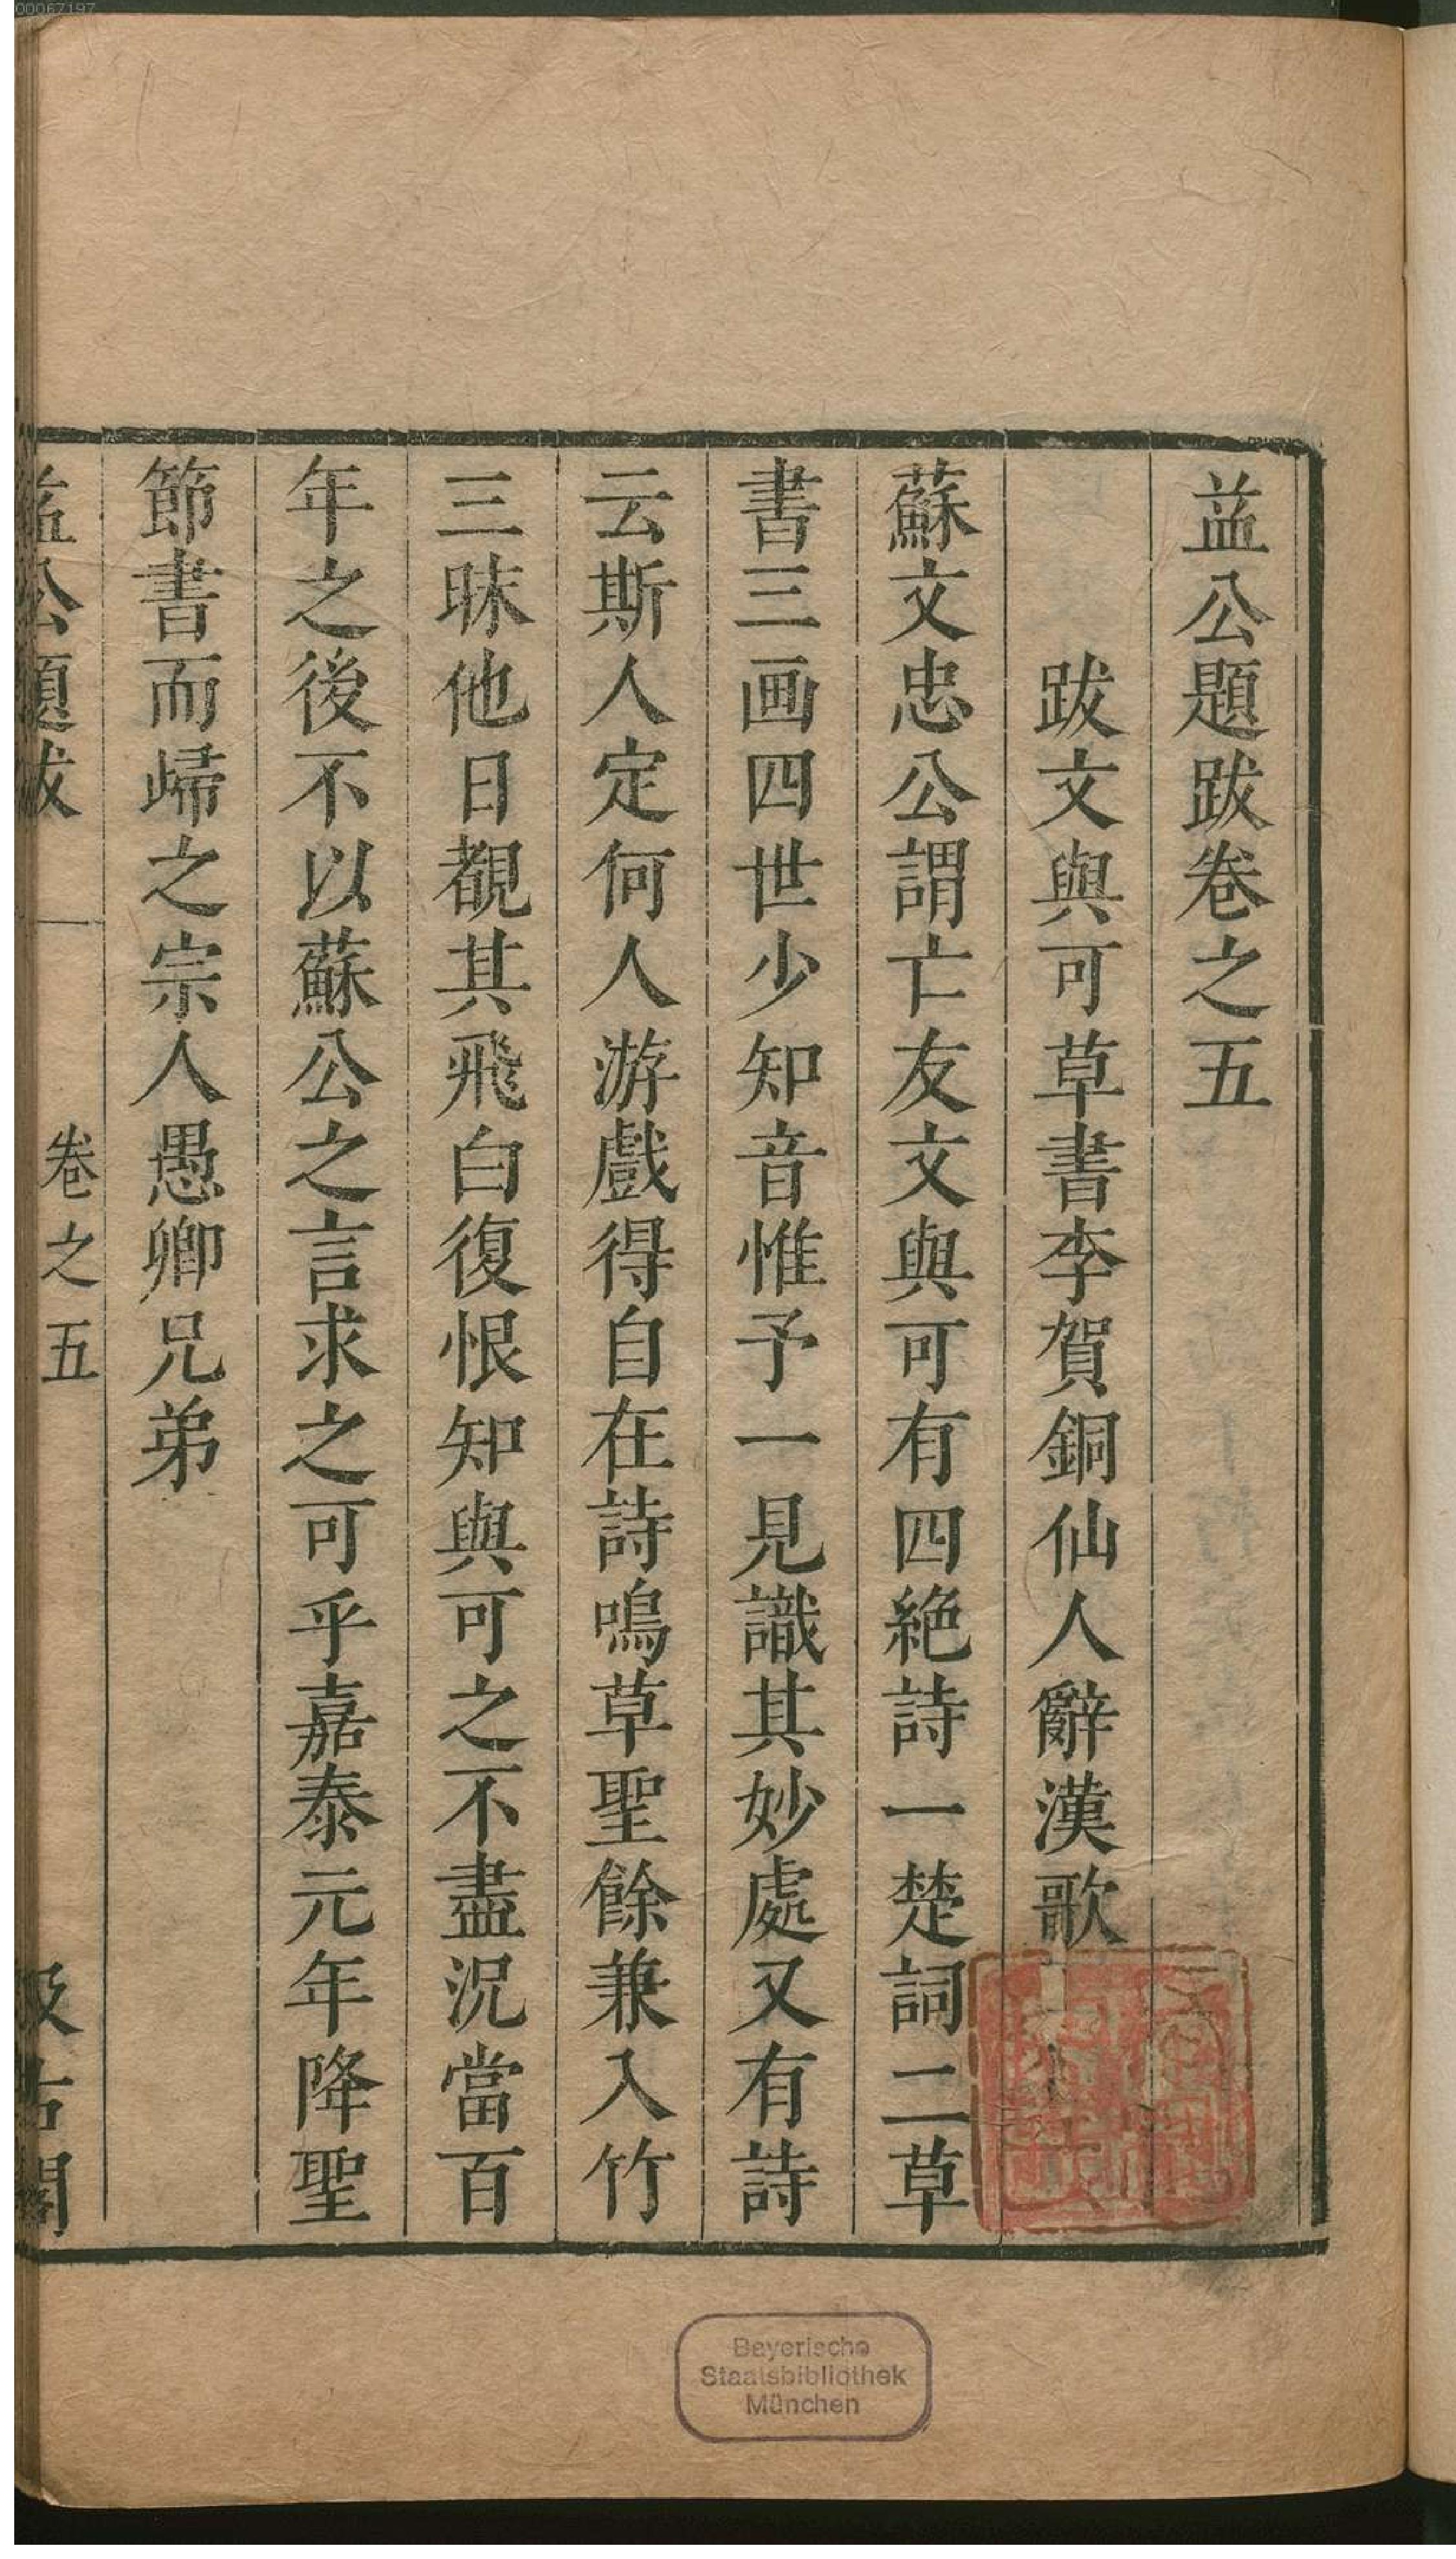 益公題跋卷之五
跋文與可草書李賀銅仙人辭漢歌
蘇文忠公謂亡友文與可有四絶詩一楚詞二草
書三画四世少知音惟予一見識其妙處又有詩
云斯人定何人游戲得自在詩鳴草聖餘兼入竹
三昧他日覩其飛白復恨知與可之不盡況當百
年之後不以蘇公之言求之可乎嘉泰元年降聖
節書而歸之宗人愚卿兄弟
益公題跋 卷之五 一 汲古閣
Bayerische
Staatsbibliothek
München
00067197